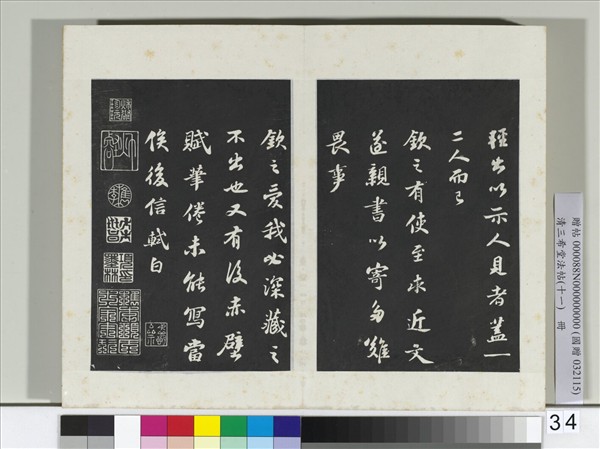 輕出以示人見者盖一
二人而已
欽之有使至求近文
遂親書以寄多難
畏事
欽之愛我必深藏之
不出也又有後赤壁
賦筆倦未能寫當
俟後信軾白
贈帖 000088N000000000 (國贈 032115)
清三希堂法帖(十一) 冊
34